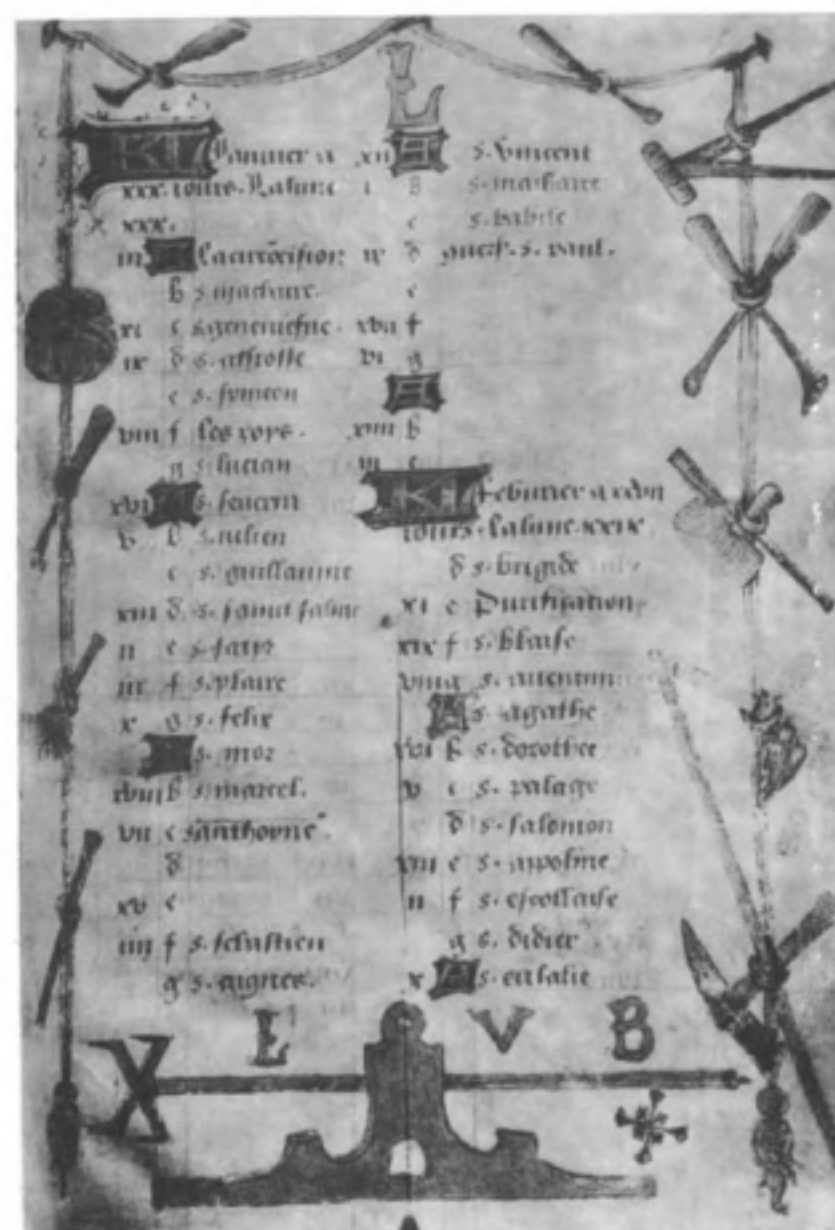 L
KL Januier a
xxx. iours. La lune
xxx.
A la circoncision
b s. machaire.
xi c s. geneuiefue.
d
e s. symeon
viii f les roys.
g s. lucian
xvi A s. seuerin
v b s. iulien
c s. guillaume
xiii d s.
ii e s.
f s. ylaire
x g s. felix
A s. mor
xviii b s. marcel.
vii c s anthoyne
d
xv e
iiii f s. sebastien
g s. aignes.
xii A s. vincent
i B s. machaire
c s. babile
ix d s. paul.
e
xvii f
vi g
A
xiiii b
iii c
KL feburier a
iours. la lune. xxix.
d s. brigide
xi e Purification
xix f s. blaise
viii g s. auentin
A s. agathe
xvi b s. dorothee
v c s. palage
d s. salomon
xiii e s. appoline
ii f s. escollasse
g s. didier
x A s. eulalie
X L V B